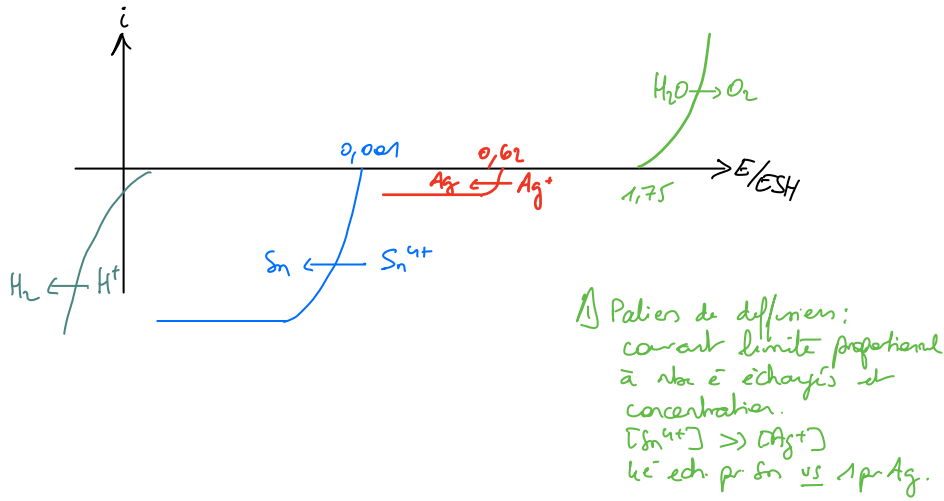 i
H₂O → O₂
0,001
0,62
Ag ← Ag⁺
E/ESH
1,75
Sn ← Sn⁴⁺
H₂ ← H⁺
⚠ Paliers de diffusions :
courant limite proportionnel
à nbre é échangés et
concentration.
[Sn⁴⁺] >> [Ag⁺]
4é ech. pr Sn vs 1 pr Ag.